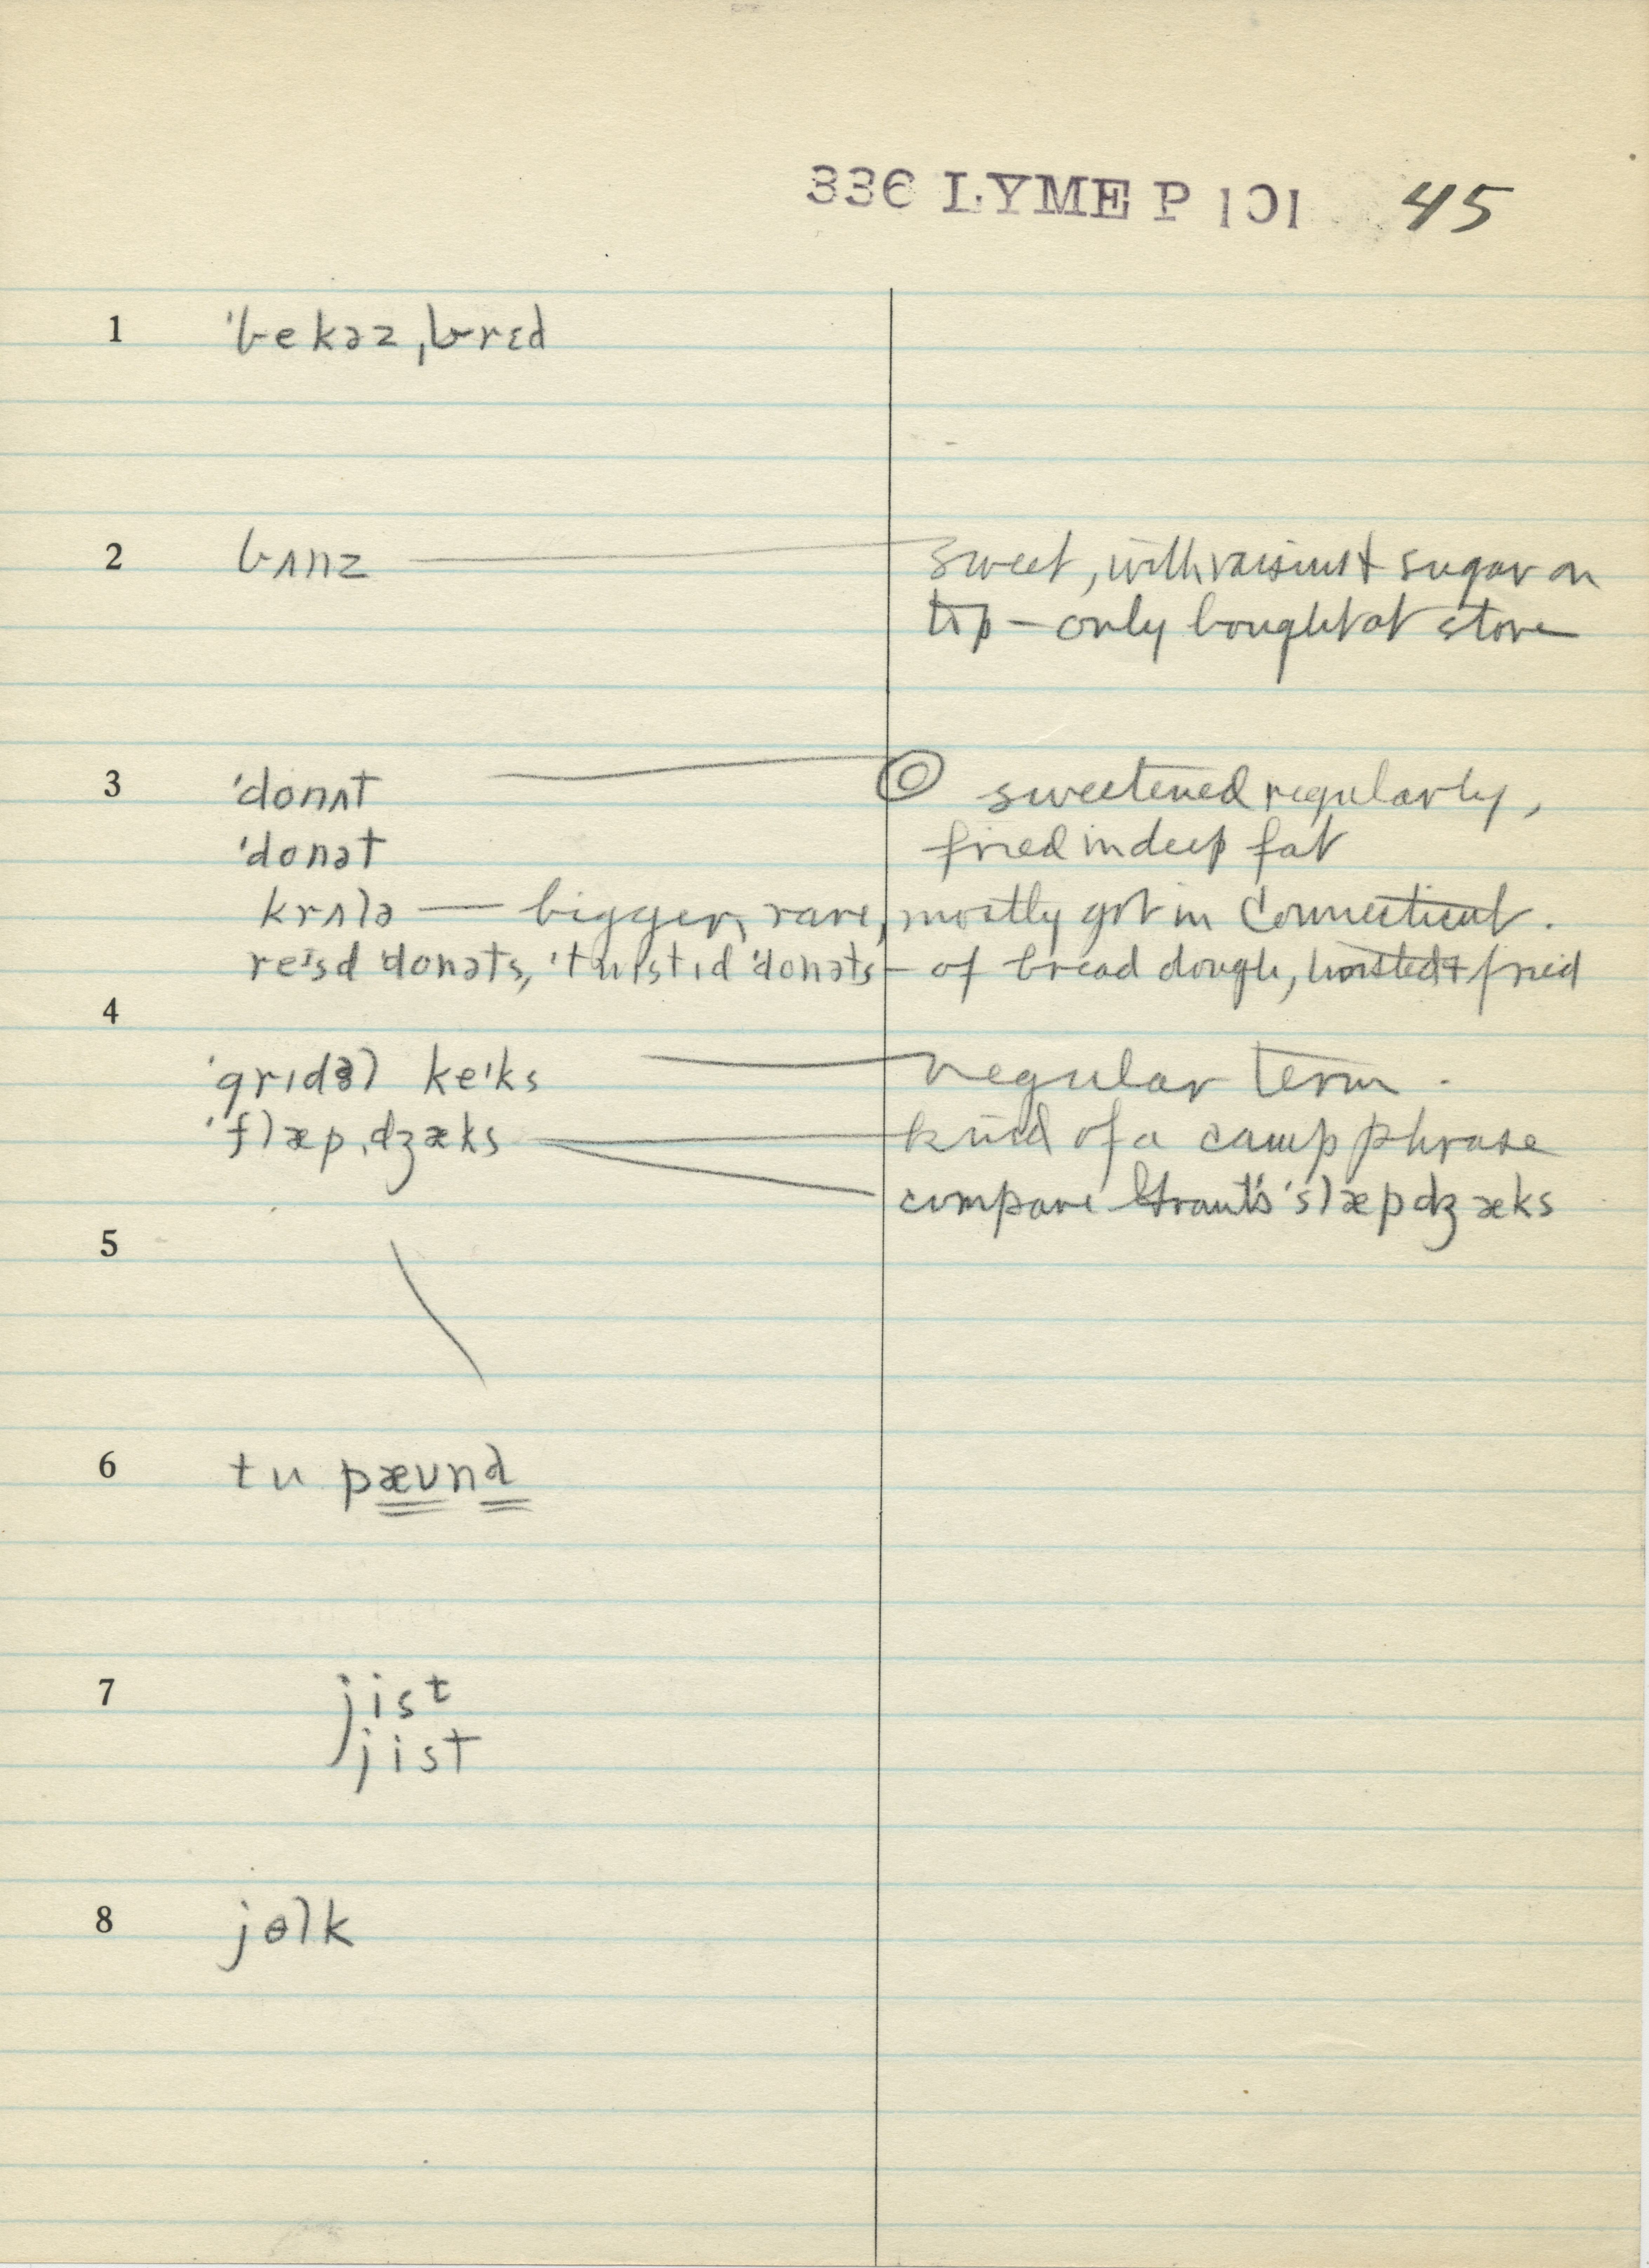 336 LYME P 101 45
1 ˈbekəz ˌbrɛd
2 bʌnz — sweet, with raisins & sugar on
top – only bought at store
3 ˈdonʌt — ◎ sweetened regularly,
ˈdonət fried in deep fat
krʌlə — bigger, rare, mostly got in Connecticut.
reɪsd ˈdonəts, ˈtwɪstɪd ˈdonəts – of bread dough, twisted & fried
4
ˈgrɪdəl keɪks — regular term.
ˈflæpˌdʒæks — kind of a camp phrase
compare Grant's ˈslæpdʒæks
5
6 tu pæʊnd
7 jist
jist
8 jɵlk